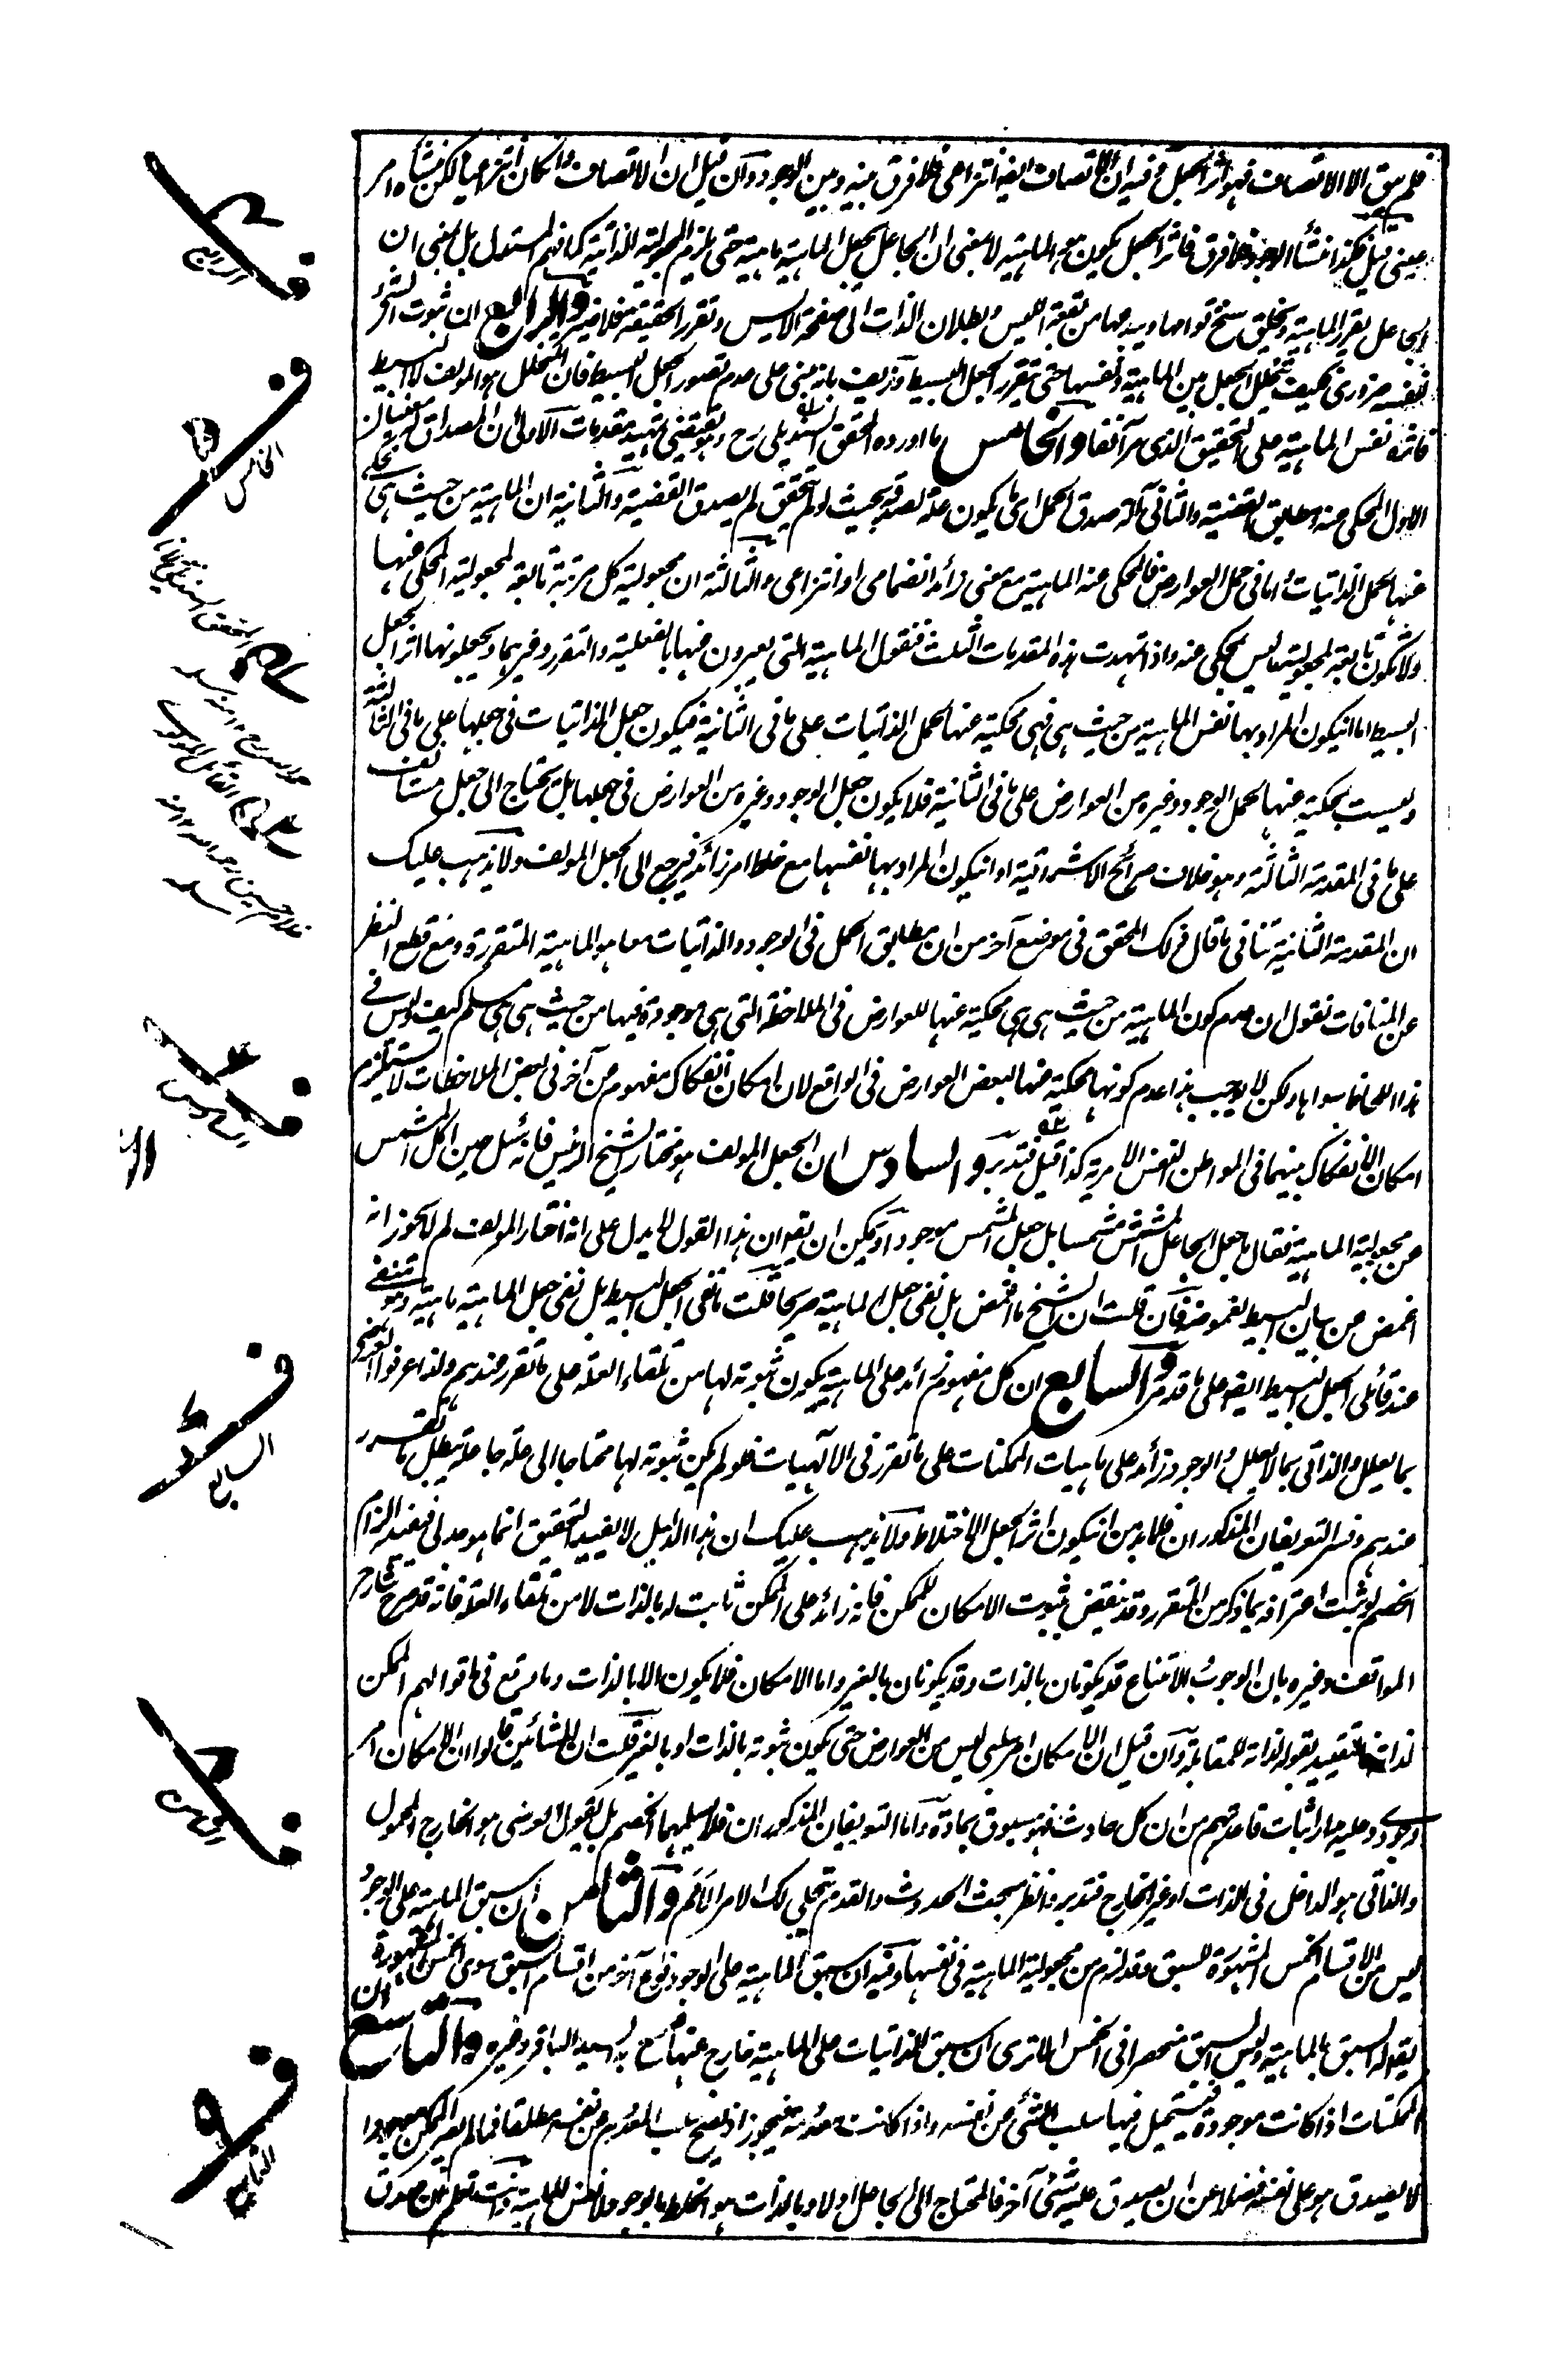 فلم يبق الا الاتصاف فهو اثر الجعل وفيه ان الاتصاف ايضا انتزاعى فلا فرق بينه وبين الوجود وان قيل ان الاتصاف وان كان انتزاعيا لكن منشأه امر
عينى قيل هكذا منشأ الوجود فلا فرق فاثر الجعل يكون هو الماهية لا بمعنى ان الجاعل يجعل الماهية ماهية حتى يلزم المجعولية الذاتية كما فهم المستدل بل بمعنى ان
الجاعل يقرر الماهية ويخلق سنخ قوامها ويبدعها من بقعة الليس وبطلان الذات الى صفحة الايس وتقرر الحقيقة فلا ضير والرابع ان ثبوت الشئ
لنفسه ضرورى فكيف يتخلل الجعل بين الماهية ونفسها حتى يتقرر الجعل البسيط وزيف بانه مبنى على عدم تصور الجعل البسيط فان المتخلل هو المؤلف لا البسيط
فاثره نفس الماهية على التحقيق الذى مر آنفا والخامس ما اورده المحقق السنديلى رح وهو يقتضى تمهيد مقدمات الاولى ان للمصداق معنيان
الاول المحكى عنه ومطابق القضية والثانى آلة صدق الحمل اى ما يكون علة لصدقه بحيث لو لم يتحقق لم يصدق القضية والثانية ان الماهية من حيث هى محكى
عنها لحمل الذاتيات واما فى حمل العوارض فالمحكى عنه الماهية مع معنى زائد انضمامى او انتزاعى والثالثة ان مجعولية كل مرتبة تابعة لمجعولية المحكى عنها
ولا تكون تابعة لمجعولية ما ليس بمحكى عنه واذا تمهدت هذه المقدمات الثلث فنقول الماهية التى يعبرون عنها بالفعلية والتقرر وغيرهما ويجعلونها اثر الجعل
البسيط اما ان يكون المراد بها نفس الماهية من حيث هى فهى محكية عنها لحمل الذاتيات على ما فى الثانية فيكون جعل الذاتيات فى جعلها على ما فى الثالثة
وليست بمحكية عنها لحمل الوجود وغيره من العوارض على ما فى الثانية فلا يكون جعل الوجود وغيره من العوارض فى جعلها بل يحتاج الى جعل مستانف
على ما فى المقدمة الثالثة وهو خلاف صرائح الاشراقية او ان يكون المراد بها نفسها مع خلط امر زائد فيرجع الى الجعل المؤلف ولا يذهب عليك
ان المقدمة الثانية تنافى ما قال ذلك المحقق فى موضع آخر من ان مطابق الحمل فى الوجود والذاتيات معا هو الماهية المتقررة ومع قطع النظر
عن المنافات نقول ان عدم كون الماهية من حيث هى هى محكية عنها للعوارض فى الملاحظة التى هى موجودة فيها من حيث هى هى مسلم كيف وليس فى
هذا اللحاظ سواها ولكن لا يوجب هذا عدم كونها محكية عنها لبعض العوارض فى الواقع لان امكان انفكاك مفهوم من آخر فى بعض الملاحظات لا يستلزم
امكان الانفكاك بينهما فى المواطن النفس الامرية كذا قيل فتدبر والسادس ان الجعل المؤلف هو مختار الشيخ الرئيس فانه سئل حين اكل المشمش
عن مجعولية الماهية فقال ما جعل الجاعل المشمش مشمشا بل جعل المشمش موجودا ويمكن ان يقال ان هذا القول لا يدل على انه اختار المؤلف لم لا يجوز انه
اغمض عن بيان البسيط لغموضه فان قلت ان الشيخ ما اغمض بل نفى جعل الماهية صريحا قلت ما نفى الجعل البسيط بل نفى جعل الماهية ماهية وهو منفى
عند قائلى الجعل البسيط ايضا على ما قد مر والسابع ان كل مفهوم زائد على الماهية يكون ثبوته لها من تلقاء العلة على ما تقرر عندهم ولذا عرفوا العرضى
بما يعلل والذاتى بما لا يعلل والوجود زائد على ماهيات الممكنات على ما تقرر فى الالهيات فلو لم يكن ثبوته لها محتاجا الى علة جاعلة يبطل ما تقرر
عندهم وفسد التعريفان المذكوران فلا بد من ان يكون اثر الجعل الاختلاط ولا يذهب عليك ان هذا الدليل لا يفيد التحقيق انما هو جدلى فيفيد الزام
الخصم لو ثبت اعترافه بما ذكر من المتقرر وقد ينقض بثبوت الامكان للممكن فانه زائد على الممكن ثابت له بالذات لا من تلقاء العلة فانه قد صرح شارح
المواقف وغيره بان الوجوب والامتناع قد يكونان بالذات وقد يكونان بالغير واما الامكان فلا يكون الا بالذات وما وقع فى اقوالهم الممكن
لذاته فالتقييد بقوله لذاته للمقابلة وان قيل ان الامكان امر سلبى ليس من العوارض حتى يكون ثبوته بالذات او بالغير قلت ان المشائين قالوا ان الامكان امر
وجودى وعليه مدار اثبات قاعدتهم من ان كل حادث فهو مسبوق بمادة واما التعريفان المذكوران فلا يسلمهما الخصم بل يقول العرضى هو الخارج المحمول
والذاتى هو الداخل فى الذات او غير الخارج فتدبر وانظر مبحث الحدوث والقدم يتجلى لك الامر الاتم والثامن ان سبق الماهية على الوجود
ليس من الاقسام الخمس المشهورة للسبق وقد لزم من مجعولية الماهية فى نفسها وفيه ان سبق الماهية على الوجود نوع آخر من اقسام السبق سوى الخمس المشهورة
يقال له السبق بالماهية وليس السبق منحصرا فى الخمس الا ترى ان سبق الذاتيات على الماهية خارج عنها صرح به السيد الباقر وغيره والتاسع ان
الممكنات اذا كانت موجودة فيستحيل فيها سلب الشئ عن نفسه واذا كانت معدومة فيجوز اذ يصح سلب المعدوم عن نفسه مطلقا فما لم يصر الممكن موجودا
لا يصدق هو على نفسه فضلا عن ان يصدق عليه شئ آخر فالمحتاج الى الجاعل اولا وبالذات هو الخلط بالوجود لا نفس الماهية وانت تعلم ان صدق
ف
الرابع
ف
الخامس
ف
السادس
ف
السابع
ف
الثامن
ف
التاسع